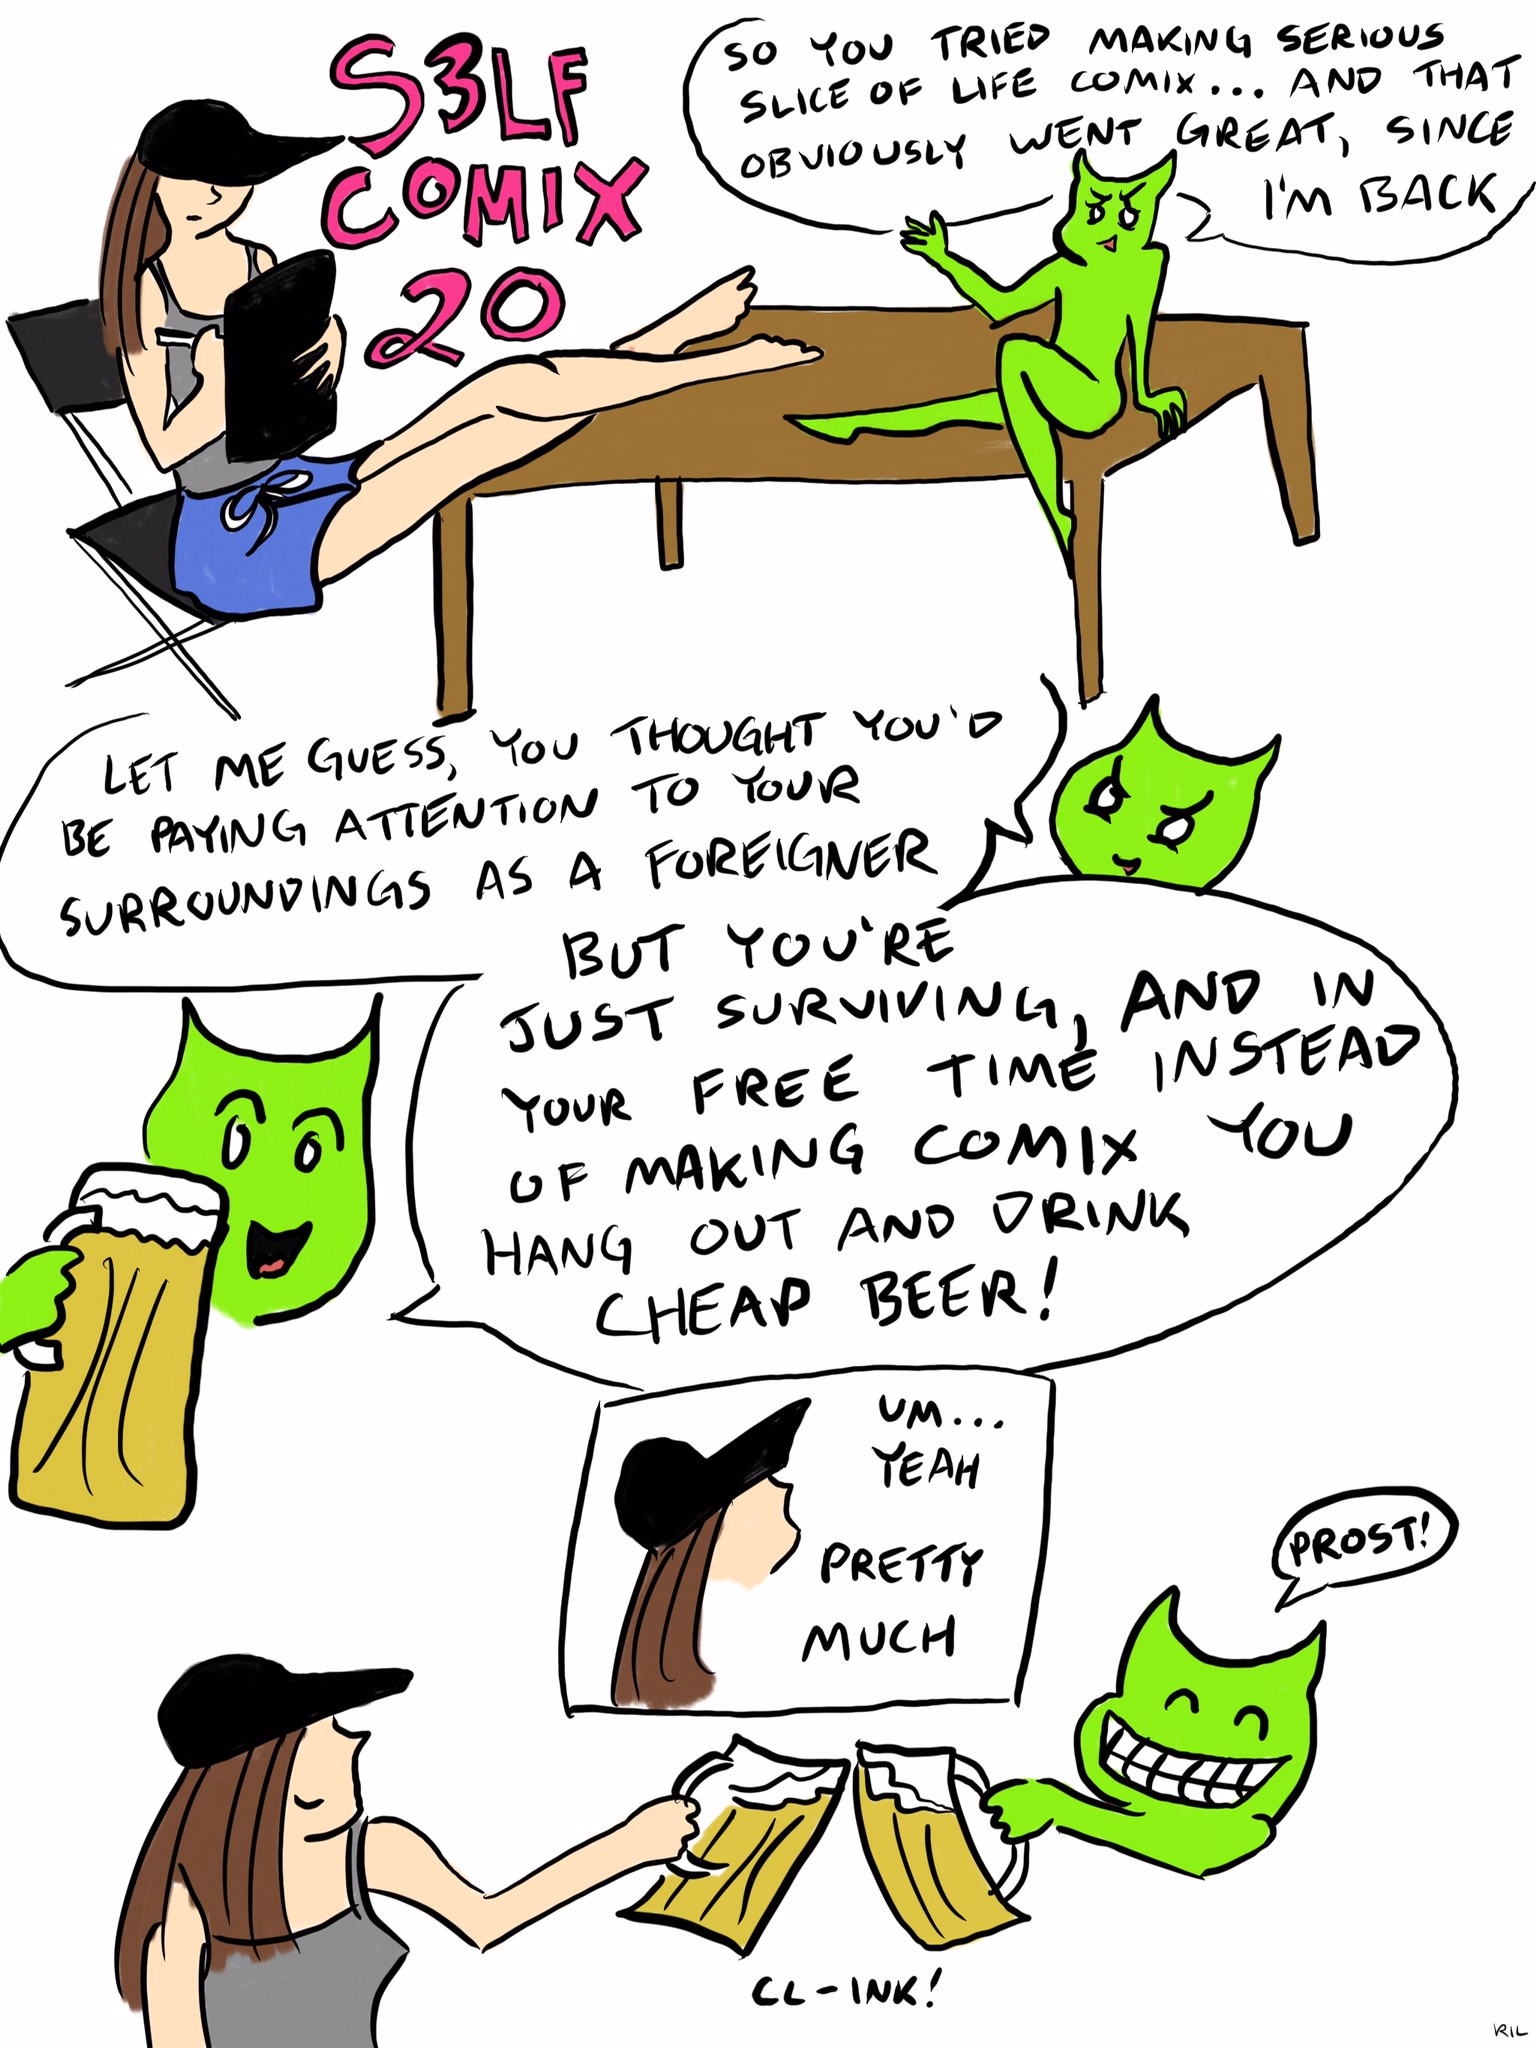 S3LF
COMIX
20
SO YOU TRIED MAKING SERIOUS
SLICE OF LIFE COMIX... AND THAT
OBVIOUSLY WENT GREAT, SINCE
I'M BACK
LET ME GUESS, YOU THOUGHT YOU'D
BE PAYING ATTENTION TO YOUR
SURROUNDINGS AS A FOREIGNER
BUT YOU'RE
JUST SURVIVING, AND IN
YOUR FREE TIME INSTEAD
OF MAKING COMIX YOU
HANG OUT AND DRINK
CHEAP BEER!
UM...
YEAH
PRETTY
MUCH
PROST!
CL-INK!
RIL